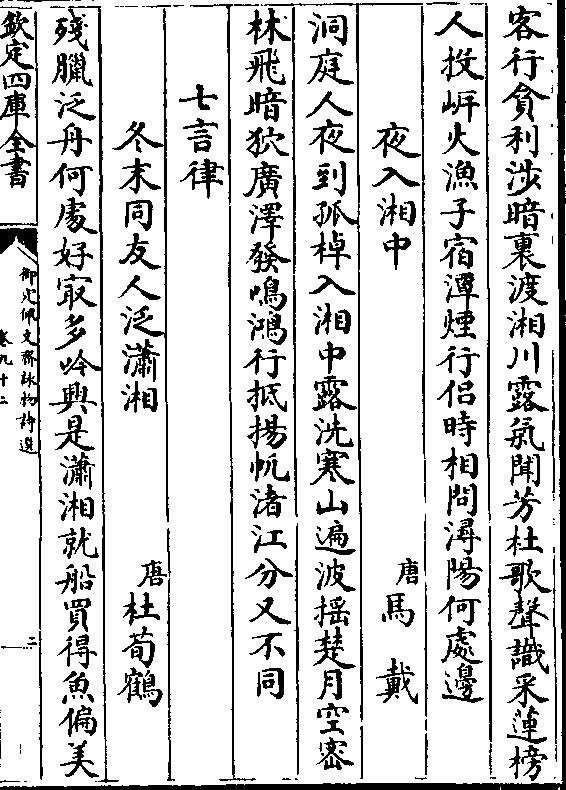 客行貪利渉暗裏渡湘川露氣聞芳杜歌聲識采蓮榜
人投㟁火漁子宿潭煙行侶時相問潯陽何處邊
夜入湘中　唐馬戴
洞庭人夜到孤棹入湘中露洗寒山遍波揺楚月空宻
林飛暗狖廣澤發鳴鴻行抵揚帆渚江分又不同
七言律
冬末同友人泛瀟湘　唐杜荀鶴
殘臘泛舟何處好㝡多吟興是瀟湘就船買得魚偏美
欽定四庫全書
御定佩文齋詠物詩選
卷九十二
二